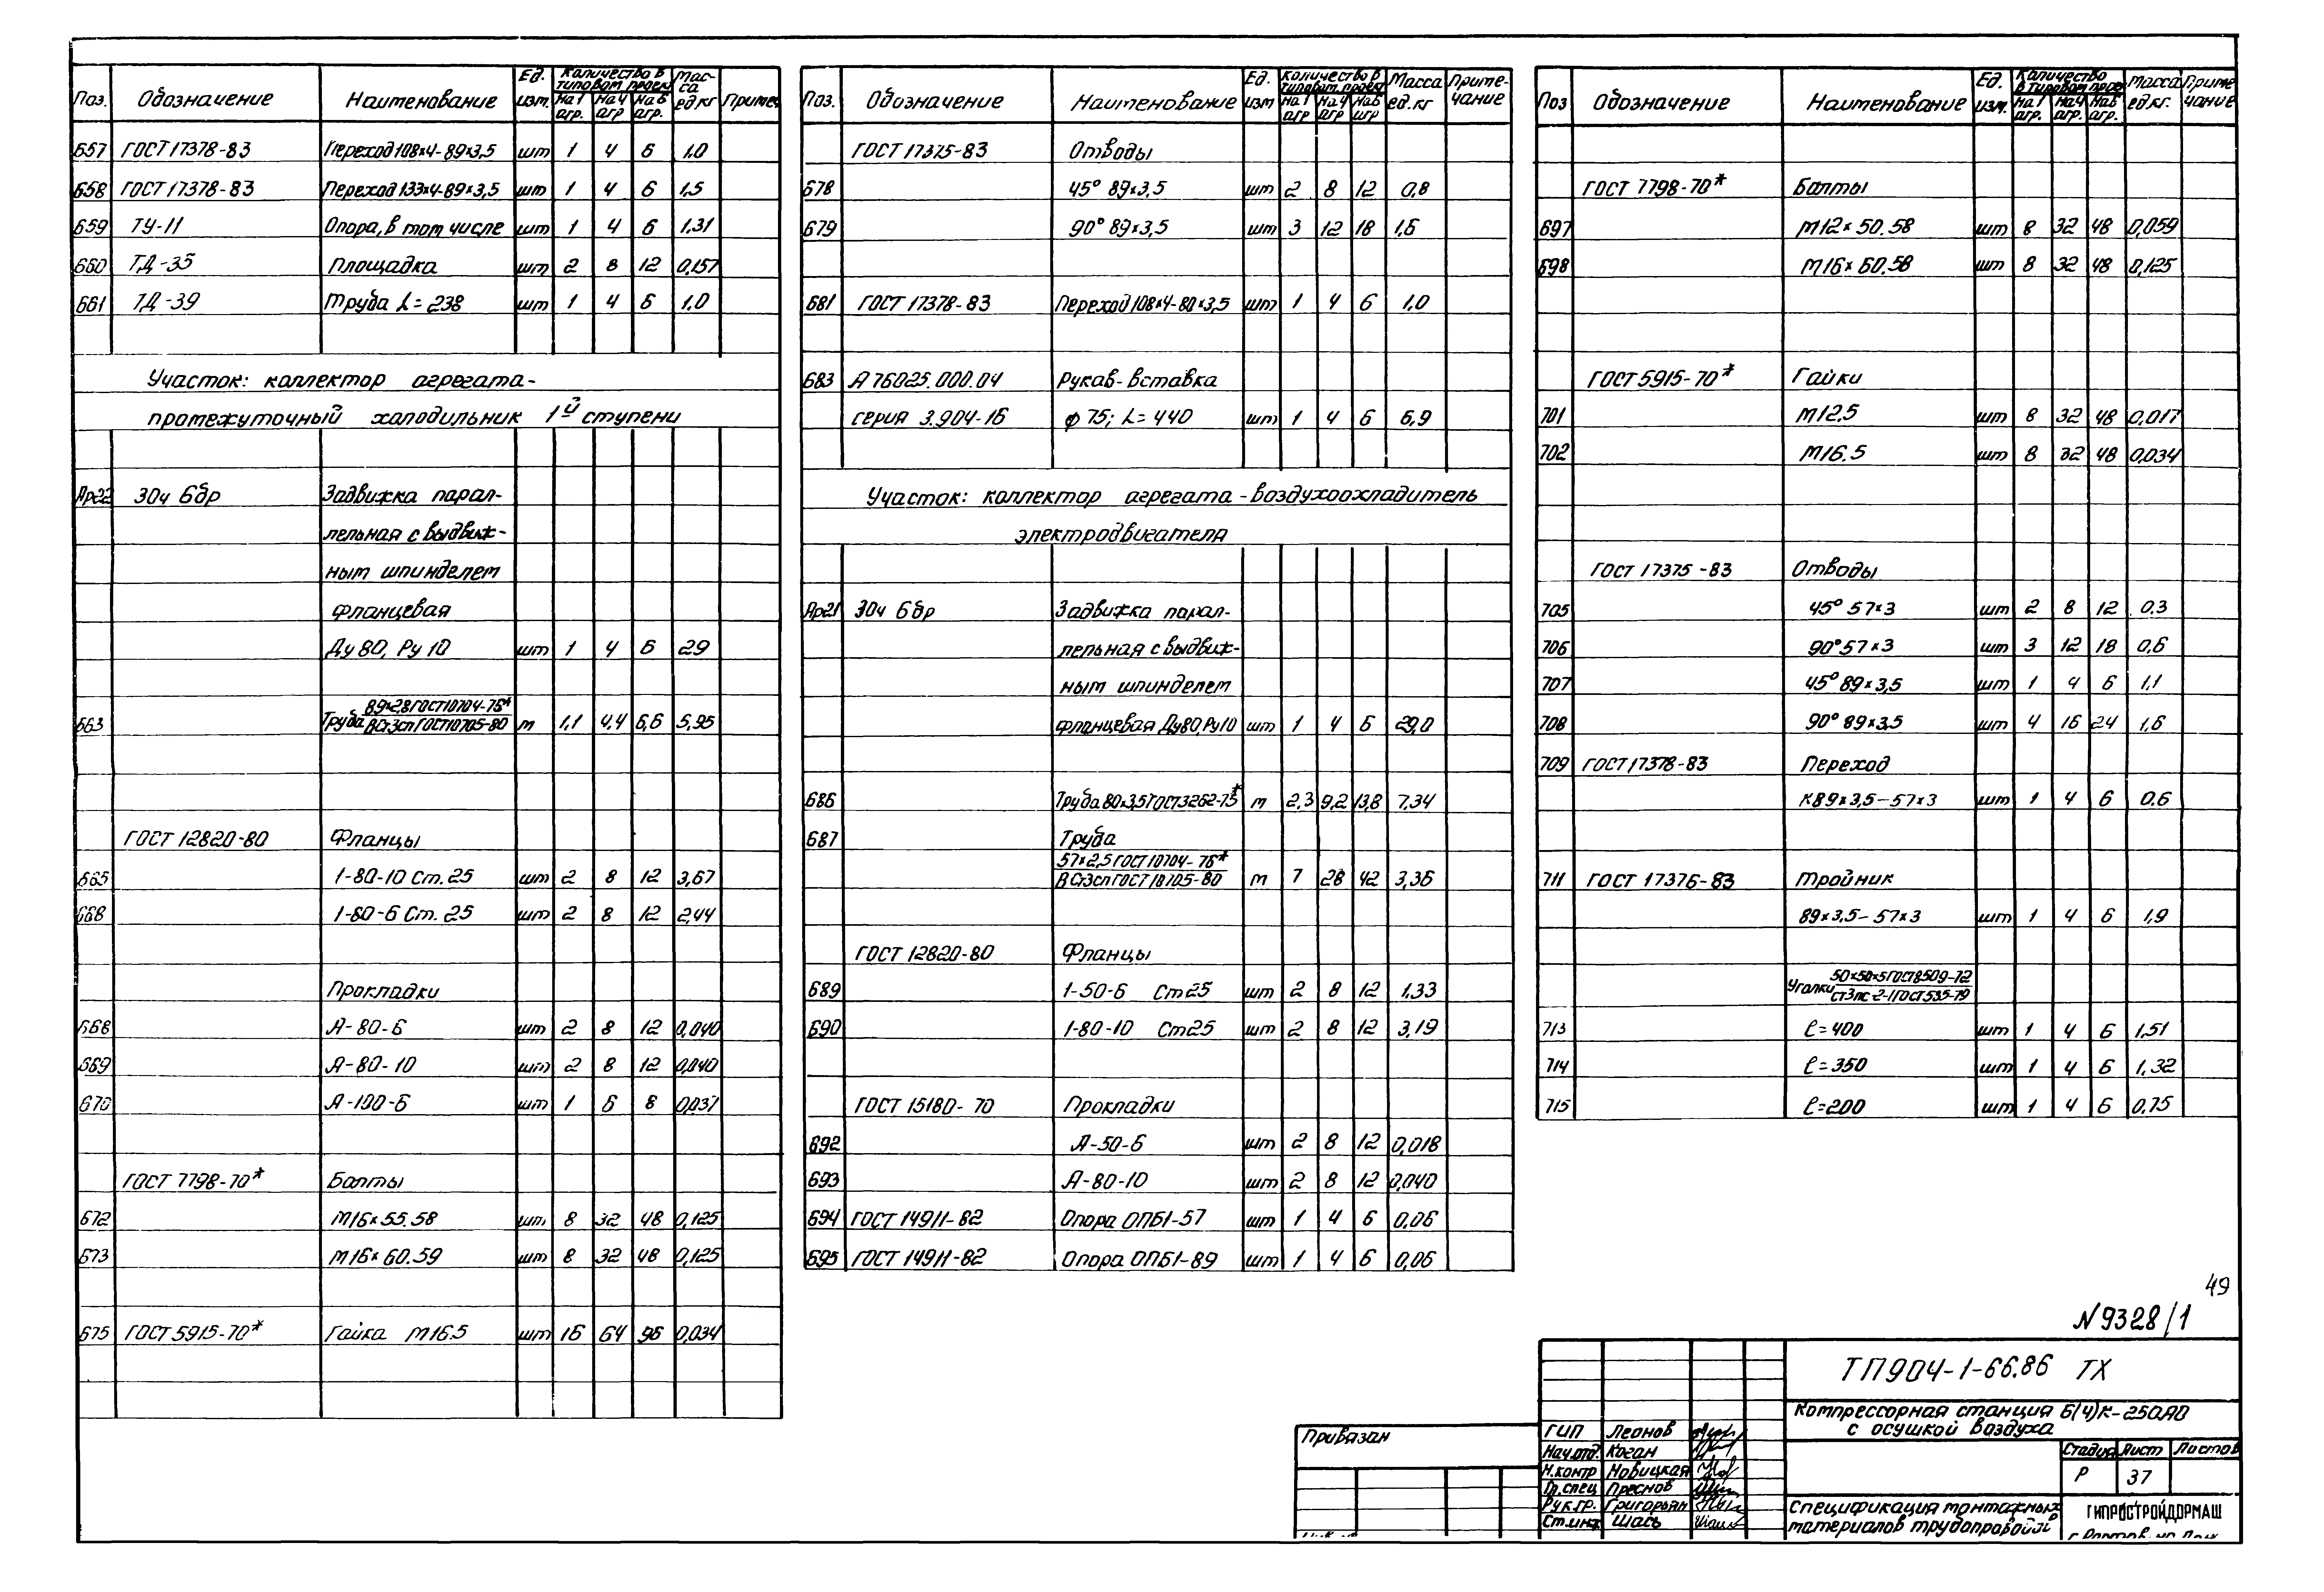 Поз. Обозначение Наименование Ед. изм. Количество в типовом проек На 1 агр. На 4 агр На 6 агр. Мас-са ед.кг Примеч
657 ГОСТ 17378-83 Переход 108×4-89×3,5 шт 1 4 6 1,0
658 ГОСТ 17378-83 Переход 133×4-89×3,5 шт 1 4 6 1,5
659 ТУ-11 Опора, в том числе шт 1 4 6 1,31
660 ТД-35 Площадка шт 2 8 12 0,157
661 ТД-39 Труба L=238 шт 1 4 6 1,0
Участок: коллектор агрегата-
промежуточный холодильник 1й ступени
Ар22 30ч 6бр Задвижка парал-
лельная с выдвиж-
ным шпинделем
фланцевая
Ду 80, Ру 10 шт 1 4 6 29
663 Труба 89×2,8 ГОСТ 10704-76*
ВСт3сп ГОСТ 10705-80 м 1,1 4,4 6,6 5,95
ГОСТ 12820-80 Фланцы
665 1-80-10 Ст.25 шт 2 8 12 3,67
1-80-6 Ст.25 шт 2 8 12 2,44
Прокладки
668 А-80-6 шт 2 8 12 0,040
669 А-80-10 шт 2 8 12 0,040
670 А-100-6 шт 1 6 8 0,037
ГОСТ 7798-70* Болты
672 М16×55.58 шт 8 32 48 0,125
673 М16×60.59 шт 8 32 48 0,125
675 ГОСТ 5915-70* Гайка М16.5 шт 16 64 96 0,034
Поз. Обозначение Наименование Ед. изм Количество в типовом проек На 1 агр На 4 агр На 6 агр Масса ед.кг Приме-чание
ГОСТ 17375-83 Отводы
678 45° 89×3,5 шт 2 8 12 0,8
679 90° 89×3,5 шт 3 12 18 1,6
681 ГОСТ 17378-83 Переход 108×4-80×3,5 шт 1 4 6 1,0
683 А 76025.000.04 Рукав-вставка
серия 3.904-16 ф 75; L=440 шт 1 4 6 6,9
Участок: коллектор агрегата-воздухоохладитель
электродвигателя
Ар21 30ч 6бр Задвижка парал-
лельная с выдвиж-
ным шпинделем
фланцевая Ду80,Ру10 шт 1 4 6 29,0
686 Труба 80×3,5 ГОСТ 3262-75* м 2,3 9,2 13,8 7,34
687 Труба
57×2,5 ГОСТ 10704-76*
ВСт3сп ГОСТ 10705-80 м 7 28 42 3,36
ГОСТ 12820-80 Фланцы
689 1-50-6 Ст25 шт 2 8 12 1,33
690 1-80-10 Ст25 шт 2 8 12 3,19
ГОСТ 15180-70 Прокладки
692 А-50-6 шт 2 8 12 0,018
693 А-80-10 шт 2 8 12 0,040
694 ГОСТ 14911-82 Опора ОПБ1-57 шт 1 4 6 0,06
695 ГОСТ 14911-82 Опора ОПБ1-89 шт 1 4 6 0,06
Поз Обозначение Наименование Ед. изм. Количество в типовом проек На 1 агр. На 4 агр. На 6 агр. Масса ед.кг. Приме чание
ГОСТ 7798-70* Болты
697 М12×50.58 шт 8 32 48 0,059
698 М16×60.58 шт 8 32 48 0,125
ГОСТ 5915-70* Гайки
701 М12,5 шт 8 32 48 0,017
702 М16.5 шт 8 32 48 0,034
ГОСТ 17375-83 Отводы
705 45° 57×3 шт 2 8 12 0,3
706 90° 57×3 шт 3 12 18 0,6
707 45° 89×3,5 шт 1 4 6 1,1
708 90° 89×3,5 шт 4 16 24 1,6
709 ГОСТ 17378-83 Переход
К89×3,5-57×3 шт 1 4 6 0,6
711 ГОСТ 17376-83 Тройник
89×3,5-57×3 шт 1 4 6 1,9
Уголки 50×50×5 ГОСТ 8509-72
Ст3пс-2-1 ГОСТ 535-79
713 ℓ=400 шт 1 4 6 1,51
714 ℓ=350 шт 1 4 6 1,32
715 ℓ=200 шт 1 4 6 0,75
49
N 9328/1
ТП 904-1-66.86 ТХ
Компрессорная станция 6(4)К-250АО
с осушкой воздуха
Стадия Лист Листов
Р 37
Спецификация монтажных
материалов трубопроводов
ГИПРОСТРОЙДОРМАШ
г. Ростов-на-Дон
Привязан
ГИП Леонов
Нач.отд. Коган
Н.контр Новицкая
Гл.спец Преснов
Рук.гр. Григорьян
Ст.инж Шась